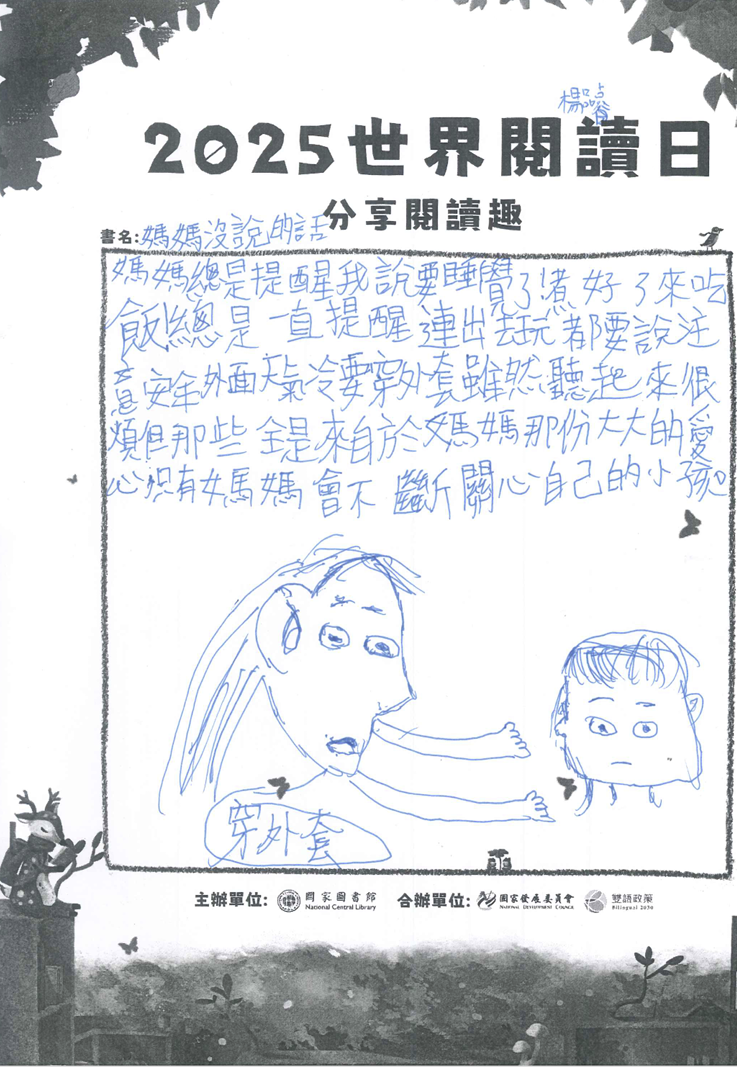 2025世界閱讀日
分享閱讀趣
書名:媽媽沒說的話
媽媽總是提醒我說要睡覺了煮好了來吃
飯總是一直提醒連出去玩都要說注
意安全外面天氣冷要穿外套雖然聽起來很
煩但那些全是來自於媽媽那份大大的愛
心只有媽媽會不斷關心自己的小孩
穿外套
主辦單位: 國家圖書館 National Central Library 合辦單位: 國家發展委員會 National Development Council 雙語政策 Bilingual 2030